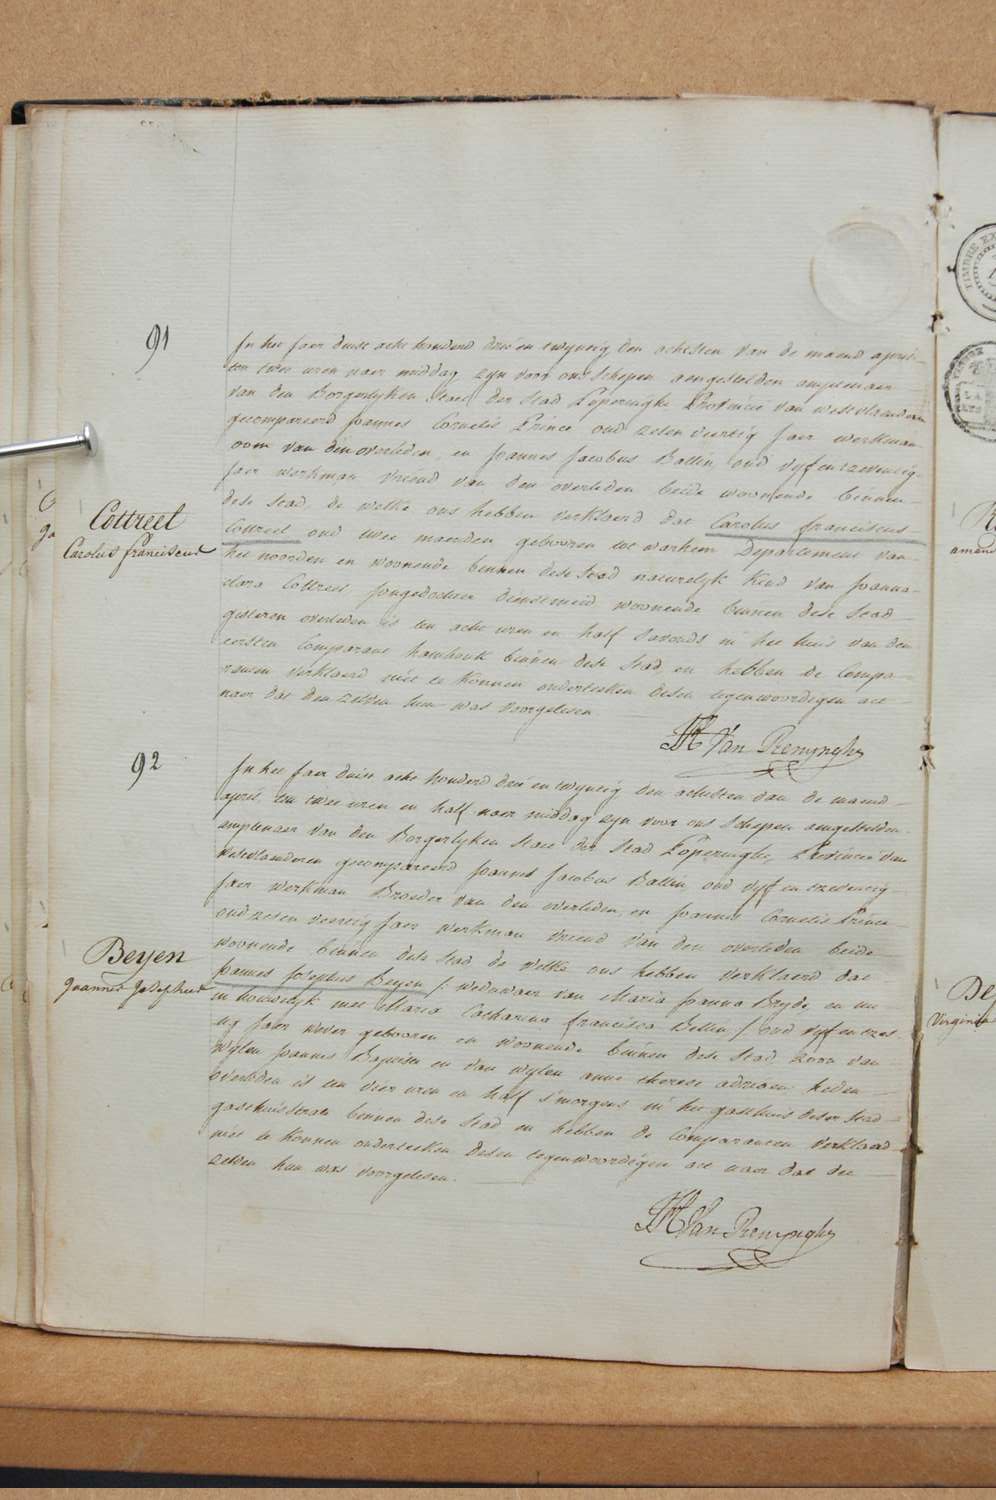 91
In het Jaer duist acht honderd drie en twyntig den achsten van de maend april
ten twee uren naer middag zyn voor ons Schepen aengestelden amptenaer
van den Borgerlyken Staet der Stad Poperinghe Provincie van westvlaenderen
gecompareerd Joannes Cornelis Prince oud zeven veertig Jaer werkman
oom van den overleden, en Joannes Jacobus Ballin oud vyf en tzeventig
Jaer werkman vriend van den overleden beide woonende binnen
dese Stad, de welke ons hebben verklaerd dat Carolus franciscus
Cottreel
Carolus franciscus
Cottreel oud twee maenden gebooren tot warhem Departement van
het noorden en woonende binnen dese Stad natuerlyk kind van Joanna
clara Cottreel Jongedochter dienstmeid woonende binnen dese Stad
gisteren overleden is ten acht uren en half s'avonds in het huis van den
eersten Comparant binnen dese Stad, en hebben de Compa-
ranten verklaerd niet te konnen onderteeken desen tegenwoordigen act
naer dat den zelven hun was voorgelesen.
Van Renynghe
92
In het Jaer duist acht honderd drie en twyntig den achsten van de maend
april, ten twee uren en half naer middag zyn voor ons Schepen aengestelden
amptenaer van den Borgerlyken Staet der Stad Poperinghe, Provincie van
westvlaenderen gecompareerd Joannes Jacobus Ballin oud vyf en tzeventig
Jaer werkman Broeder van den overleden, en Joannes Cornelis Prince
oud zeven veertig Jaer werkman vriend van den overleden beide
woonende binnen dese Stad de welke ons hebben verklaerd dat
Beyen
Joannes Josephus
Joannes Josephus Beyen /: weduwaer van Maria Joanna Bryde, en nu
in houwelyk met Maria Catharina francisca Bellin :/ oud vyf en tzes-
tig Jaer wever gebooren en woonende binnen dese Stad, zoon van
wylen Joannes Baptiste en van wylen anne therese adriaen heden
overleden is ten vier uren en half s'morgens in het gasthuis deser Stad
gasthuisstraete binnen dese Stad en hebben de Comparanten verklaerd
niet te konnen onderteeken desen tegenwoordigen act naer dat die
zelven hun was voorgelesen.
Van Renynghe
TIMBRE
amand
Virginia